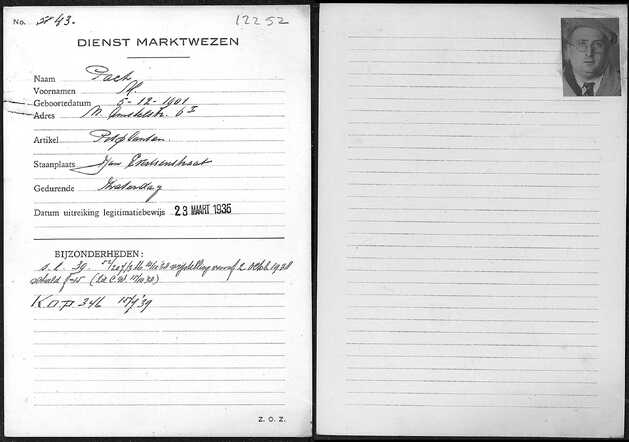 No. 43.
12252
DIENST MARKTWEZEN
Naam Pack
Voornamen M
Geboortedatum 5-12-1901
Adres N. Amstelstr. 63
Artikel Potplanten
Staanplaats Jan Evertsenstraat
Gedurende Zaterdag
Datum uitreiking legitimatiebewijs 23 MAART 1936
BIJZONDERHEDEN:
s.l. 39. vrijstelling vanaf 2 1938
schuld
K o p 346 '39
Z. O. Z.